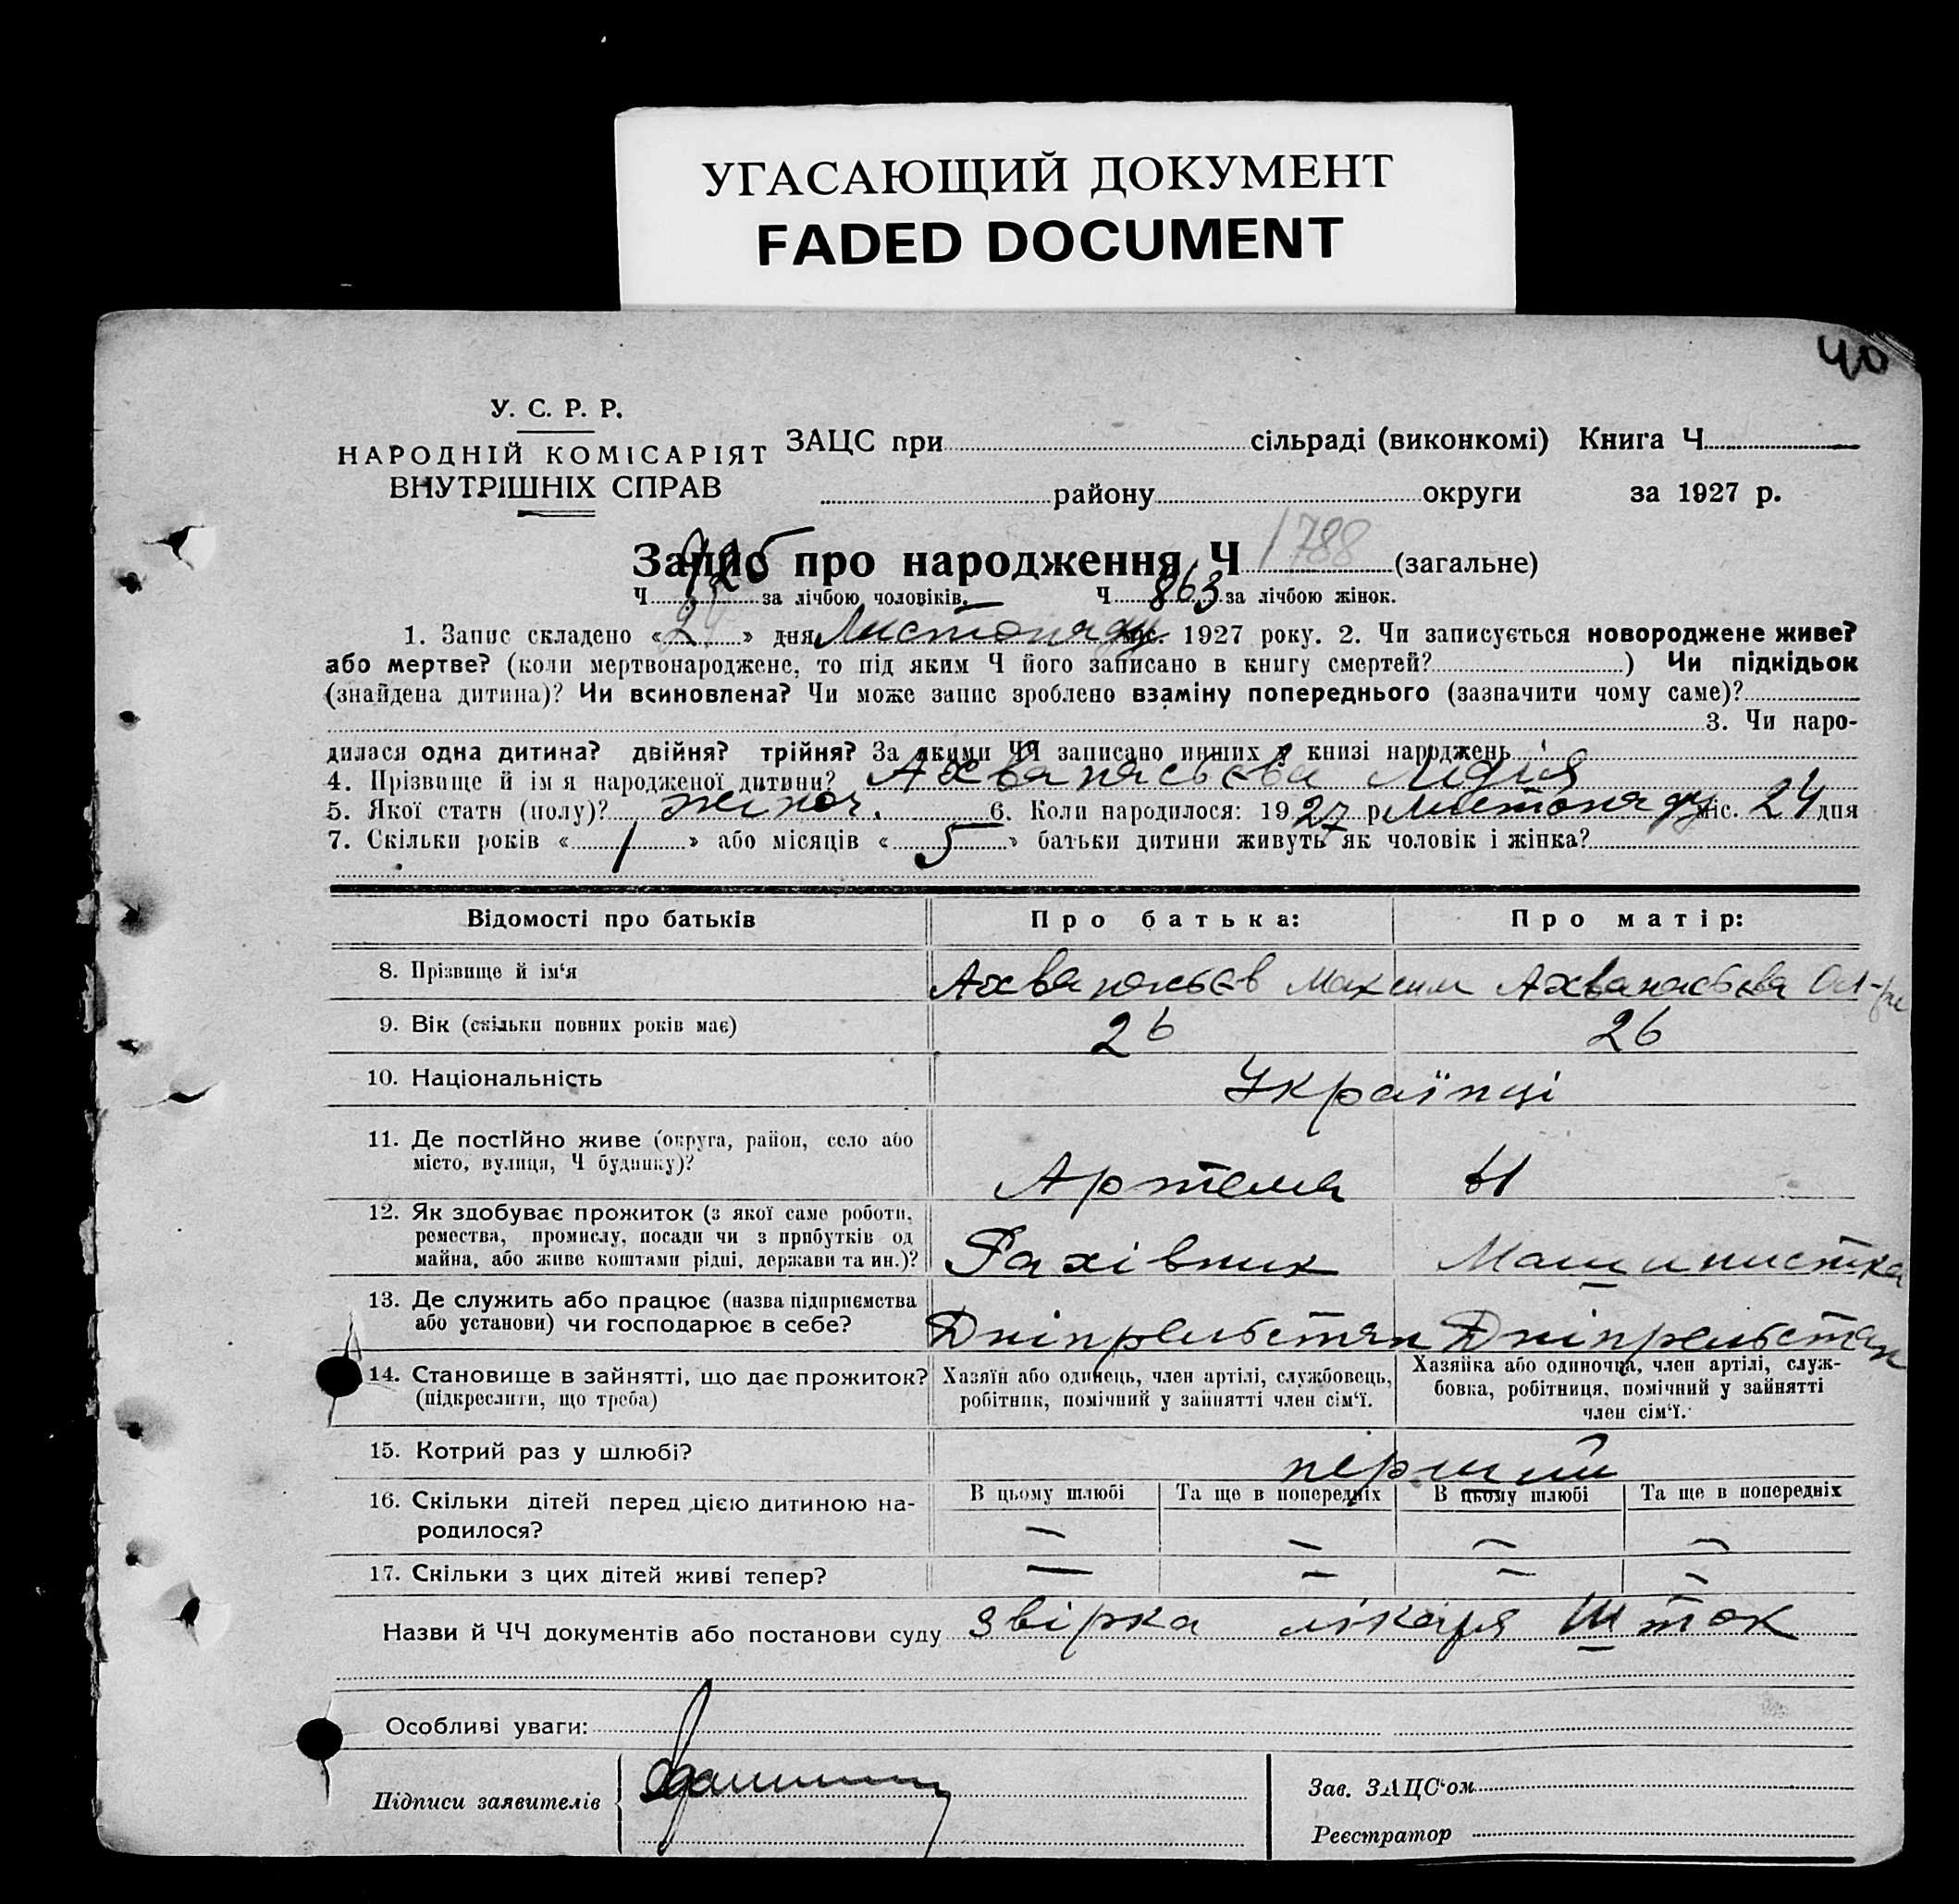 УГАСАЮЩИЙ ДОКУМЕНТ
FADED DOCUMENT
40
У. С. Р. Р.
НАРОДНІЙ КОМІСАРІЯТ
ВНУТРІШНІХ СПРАВ
ЗАЦС при сільраді (виконкомі) Книга Ч
району округи за 1927 р.
Запис про народження Ч 1788 (загальне)
Ч за лічбою чоловіків. Ч 863 за лічбою жінок.
1. Запис складено « » дня Листопаду міс. 1927 року. 2. Чи записується новороджене живе?
або мертве? (коли мертвонароджене, то під яким Ч його записано в книгу смертей? ) Чи підкідьок
(знайдена дитина)? Чи всиновлена? Чи може запис зроблено взаміну попереднього (зазначити чому саме)?
3. Чи наро-
дилася одна дитина? двійня? трійня? За якими ЧЧ записано инших у книзі народжень
4. Прізвище й ім я народженої дитини? Ахванасьєва Лідія
5. Якої стати (полу)? жіноч. 6. Коли народилося: 1927 р. Листопаду міс. 24 дня
7. Скільки років « 1 » або місяців « 5 » батьки дитини живуть як чоловік і жінка?
Відомості про батьків Про батька: Про матір:
8. Прізвище й ім‘я Ахванасьєв Максим Ахванасьєва
9. Вік (скільки повних років має) 26 26
10. Національність Українці
11. Де постІйно живе (округа, район, село або
місто, вулиця, Ч будинку)? Артема
12. Як здобуває прожиток (з якої саме роботи,
ремества, промислу, посади чи з прибутків од
майна, або живе коштами рідні, держави та ин.)? Рахівник Машинистка
13. Де служить або працює (назва підприємства
або установи) чи господарює в себе? Дніпрельстан Дніпрельстан
14. Становище в зайнятті, що дає прожиток?
(підкреслити, що треба)
Хазяїн або одинець, член артілі, службовець,
робітник, помічний у зайнятті член сім‘ї.
Хазяйка або одиночка, член артілі, служ-
бовка, робітниця, помічний у зайнятті
член сім‘ї.
15. Котрий раз у шлюбі? перший
16. Скільки дітей перед цією дитиною на-
родилося?
В цьому шлюбі Та ще в попередніх В цьому шлюбі Та ще в попередніх
— — — —
17. Скільки з цих дітей живі тепер? — — — —
Назви й ЧЧ документів або постанови суду звірка лікаря Шток
Особливі уваги:
Підписи заявителів
Зав. ЗАЦС‘ом
Реєстратор